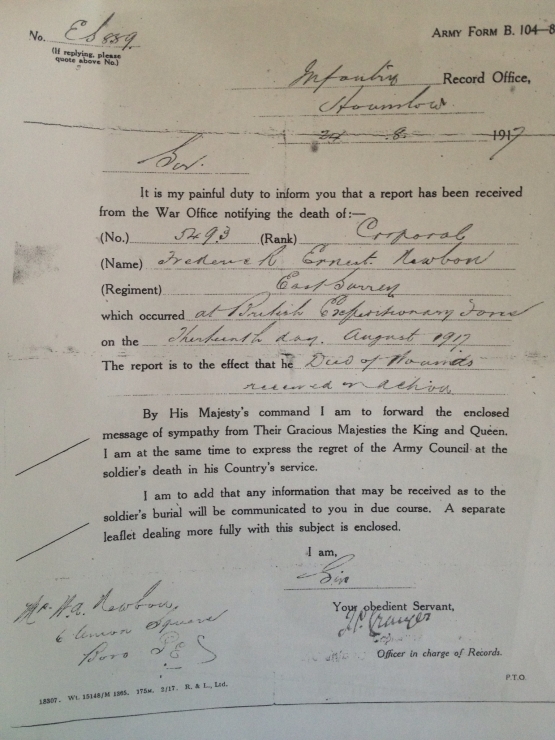 No. ES 889.
ARMY FORM B. 104—8
(If replying, please
quote above No.)
Infantry Record Office,
Hounslow.
24 8. 1917
Sir.
It is my painful duty to inform you that a report has been received
from the War Office notifying the death of:—
(No.) 5493 (Rank) Corporal
(Name) Frederick Ernest Newbon
(Regiment) East Surrey
which occurred at British Expeditionary Force
on the Thirteenth day. August 1917
The report is to the effect that he Died of Wounds
received in action
By His Majesty's command I am to forward the enclosed
message of sympathy from Their Gracious Majesties the King and Queen.
I am at the same time to express the regret of the Army Council at the
soldier's death in his Country's service.
I am to add that any information that may be received as to the
soldier's burial will be communicated to you in due course. A separate
leaflet dealing more fully with this subject is enclosed.
I am,
Sir
Your obedient Servant,
Officer in charge of Records.
Mr. H.A. Newbon,
6 Union Square
Boro S.E
P.T.O.
18307. Wt. 15148/M 1365. 175M. 2/17. R. & L., Ltd.